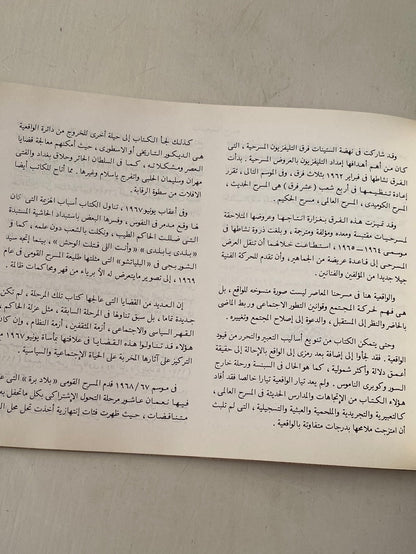 وقد شاركت فى نهضة الستينات فرق التليفزيون المسرحية ، التى
كان من أهم أهدافها إمداد التليفزيون بالعروض المسرحية . بدأت
الفرق نشاطها فى فبراير ١٩٦٢ بثلاث فرق ، وفى الموسم التالى ، تم
إعادة تنظيمها فى أربع شعب ( عشر فرق ) هى المسرح الحديث ،
المسرح الكوميدى ، المسرح العالمى ، مسرح الحكيم .
وقد تميزت هذه الفرق بغزارة انتاجها وعروضها المتلاحقة
لمسرحيات مقتبسة ومعده ومؤلفة ومترجمة ، وبلغت ذروة نشاطها فى
موسمى ٦٤ - ١٩٦٥ ، استطاعت خلالهما أن تنقل العرض
المسرحى إلى قاعدة عريضة من الجماهير ، وأن تقدم للحركة الفنية
جيلا جديدا من المؤلفين والفنانين .
والواقعية هنا فى مسرحنا المعاصر ليست صورة منسوخه للواقع ، بل
هى فهم لحركة المجتمع وقوانين التطور الاجتماعى وربط الماضى
بالحاضر والنظر إلى المستقبل ، والدعوة إلى إصلاح المجتمع وتغييره .
وحتى يتمكن الكتاب من تنويع أساليب التعبير والتحرر من قيود
الواقعية . فقد لجأوا إلى إضافة بعد رمزى إلى الواقع بالإحالة إلى حقيقة
أعمق دلالة وأكثر شمولية ، كما هو الحال فى السبنسة ورحلة خارج
السور وكوبرى الناموس . ولم يعد تيار الواقعية تيارا خالصا فقد أفاد
هؤلاء الكتاب من الإتجاهات والمدارس الحديثة فى المسرح العالمى ،
كالتعبيرية والتجريدية والملحمية والعبثية والتسجيلية ، التى لم تلبث
أن امتزجت ملامحها بدرجات متفاوتة بالواقعية .
كذلك لجأ الكتاب إلى حيلة أخرى للخروج من دائرة الواقعية
هى الديكور التاريخى أو الاسطورى ، حيث أمكنهم معالجة قضايا
العصر ومشكلاته ، كما فى السلطان الحائر وحلاق بغداد والفتى
مهران وسليمان الحلبى واتفرج ياسلام وغيرها . مما أتاح للكتاب أيضا
الافلات من سطوة الرقابة .
وفى أعقاب يونيو ١٩٦٧ ، تناول الكتاب أسباب الهزيمة التى كان
لها وقع مدمر فى النفوس ، وفسرها البعض باستبداد الحاشية المستبدة
التى ضللت الحاكم الطيب ، ونكلت بالشعب دون علمه ، كما فى
« بلدى يابلدى » « وأنت اللى قتلت الوحش » ، بينما إتجه سيد
الشوربجى فى « اليلياتشو » التى مثلتها طليعة المسرح القومى فى عام
١٩٦٩ ، إلى تصوير مايتعرض له الأبرياء من قهر ومحاكمات ظالمة .
إن العديد من القضايا التى عالجها كتاب تلك المرحلة ، لم تكن
جديدة تماما ، بل سبق تناولها فى المرحلة السابقة ، مثل عزلة الحاكم ،
القهر السياسى والاجتماعى ، أزمة المثقفين ، أزمة النظام ، وإن كان
هؤلاء قد تناولوا هذه القضايا فى علاقتها بمأساة يونيو ١٩٦٧
التركيز على آثارها المخربة على الحياة الإجتماعية والسياسية .
فى موسم ٦٧ / ١٩٦٨ قدم المسرح القومى « بلاد بره » التى
فيها نعمان عاشور مرحلة التحول الإشتراكى بكل ماتحفل به
متناقضات ، حيث ظهرت فئات إنتهازية أخذت تحل محل